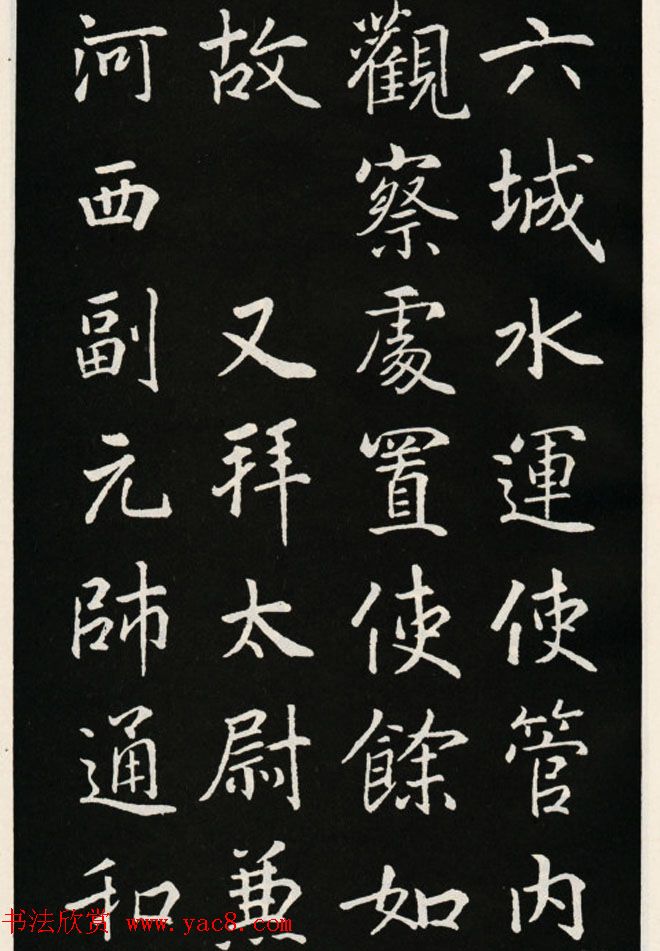 六城水運使管内
觀察處置使餘如
故 又拜太尉兼
河西副元帥通和
书法欣赏 www.yac8.com